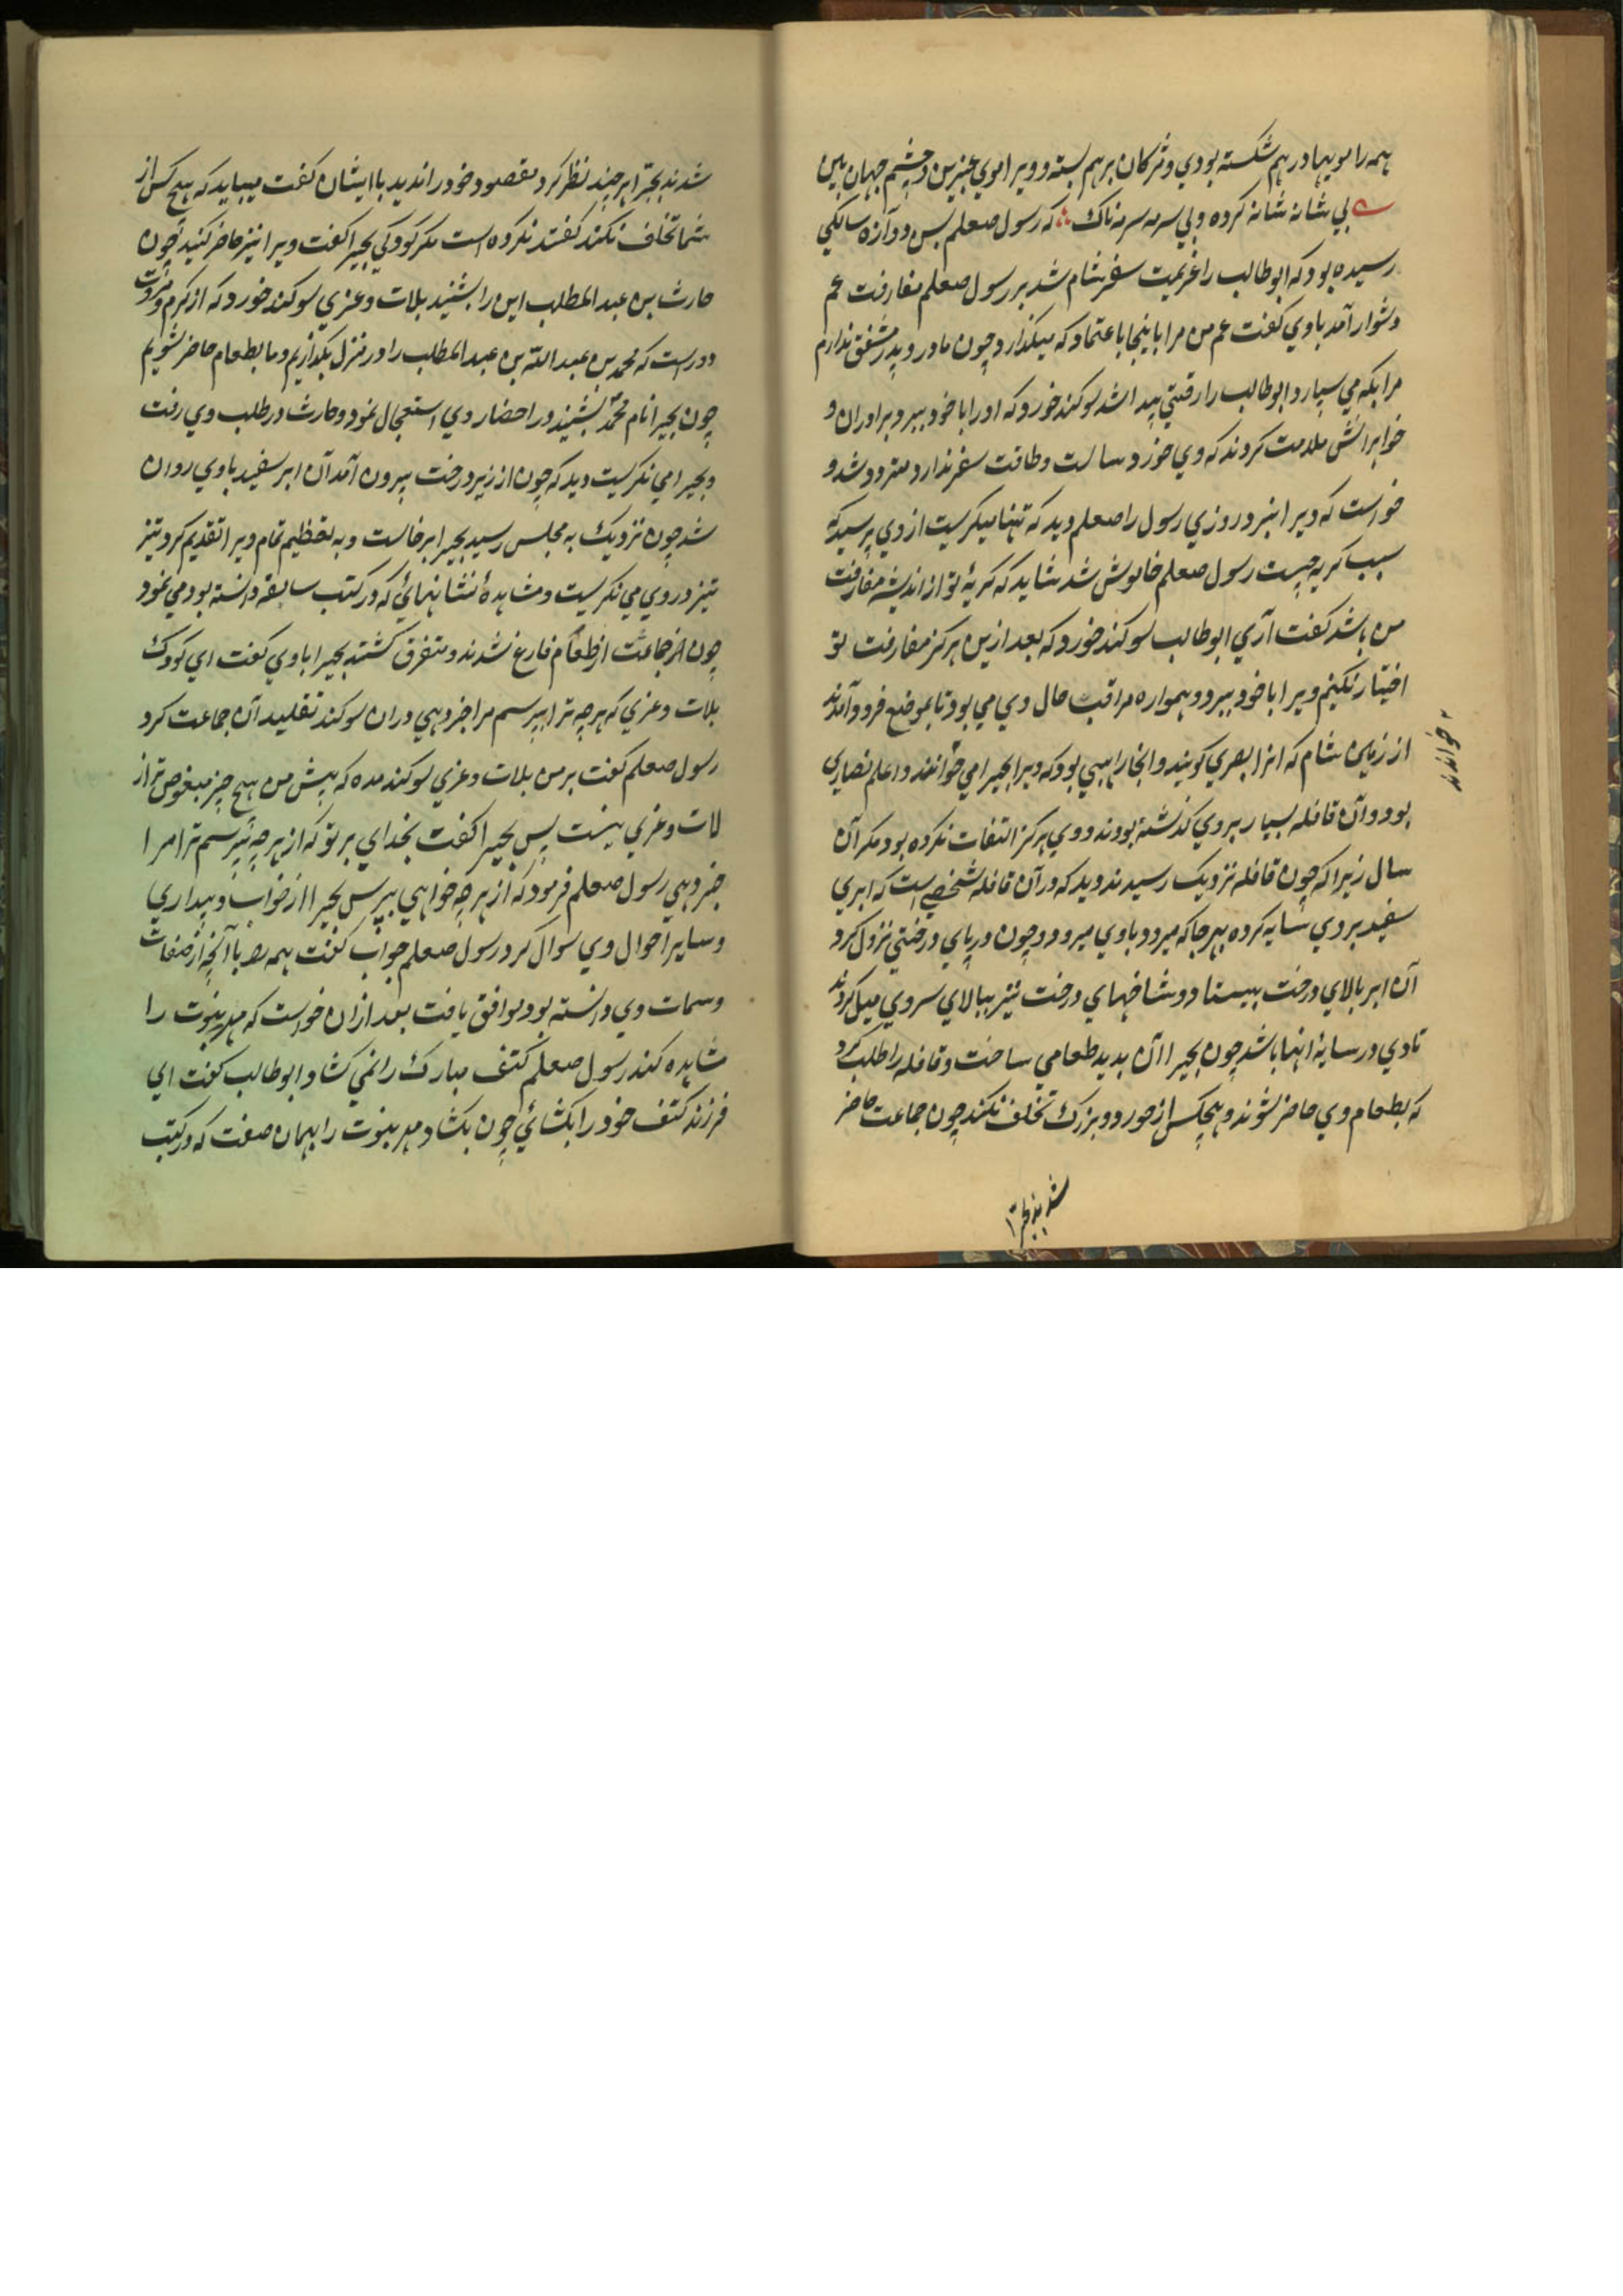 همه را مویها درهم شکسته بودی و مژکان برهم بسته و ویرا موی عنبرین و چشم جهان بین
بی شانه شانه کرده و بی سرمه سرمه ناک که رسول صعلم بس دوآزده سالکی
رسیده بود که ابوطالب را عزیمت سفر شام شد بر رسول صعلم مفارقت عم
دشوار آمد باوی کفت عم من مرا باینجا باعتماد که میکذار و چون مادر و پدر مشفق ندارم
مرا بکه می سپار و ابوطالب را رقتی پیدا شد سوکند خورد که اورا با خود ببرد برادران و
خواهرانش ملامت کردند که وی خورد سالست و طاقت سفر ندارد متردد شد و
خواست که ویرا نبرد روزی رسول را صعلم دید که تنها میکریست از وی پرسید که
سبب کریه چیست رسول صعلم خاموش شد شاید که کریهٔ تو از اندیشهٔ مفارقت
من باشد کفت آری ابوطالب سوکند خورد که بعد ازین هرکز مفارقت تو
اختیار نکنم ویرا با خود ببرد و همواره مراقب حال وی می بود تا بموضع فرود آمدند
از زمین شام که انرا بصری کویند و انجا راهبی بود که ویرا بحیرا می خوانند و اعلم نصاری
خواندند
بود و آن قافله بسیار بروی کذشته بودند و وی هرکز التفات نکرده بود مکر آن
سال زیرا که چون قافله نزدیک رسیدند دید که در آن قافله شخصی است که ابری
سفید بروی سایه کرده بهرجا که میرود باوی میرود و چون در پای درختی نزول کرد
آن ابر بالای درخت بیستاد و شاخهای درخت نیز ببالای سر وی میل کردند
تا وی در سایهٔ انها باشد چون بحیرا آن بدید طعامی ساخت و قافله را طلب کرد
که بطعام وی حاضر شوند و هیچکس از خورد و بزرک تخلف نکند چون جماعت حاضر
شدند بحیرا
شدند بحیرا هرچند نظر کرد مقصود خود را ندید با ایشان کفت میباید که هیچ کس از
شما تخلف نکند کفتند نکرده است مکر کودکی بحیرا کفت ویرا نیز حاضر کنید چون
حارث بن عبد المطلب این را بشنید بلات و عزی سوکند خورد که از کرم و مروت
دور است که محمد بن عبد الله بن عبد المطلب را در منزل بکذاریم و ما بطعام حاضر شویم
چون بحیرا نام محمد بشنید در احضار وی استعجال نمود و حارث در طلب وی رفت
و بحیرا می نکریست دید که چون از زیر درخت بیرون آمد آن ابر سفید باوی روان
شد چون نزدیک به مجلس رسید بحیرا برخاست و به تعظیم تمام ویرا تقدیم کرد تیز
تیز در وی می نکریست و مشاهدهٔ نشانهائی که در کتب سابقه دانسته بود می نمود
چون آنجماعت از طعام فارغ شدند و متفرق کشتند بحیرا باوی کفت ای کودک
بلات و عزی که هرچه ترا بپرسم مرا خبر دهی و ران سوکند تقلید آن جماعت کرد
رسول صعلم کفت بر من بلات و عزی سوکند مده که پیش من هیچ چیز مبغوض تر از
لات و عزی نیست پس بحیرا کفت بخدای بر تو که از هرچه بپرسم ترا مرا
خبر دهی رسول صعلم فرمود که از هرچه خواهی بپرس بحیرا از خواب و بیداری
و سایر احوال وی سوال کرد رسول صعلم جواب کفت همه را با آنچه از صفات
و سمات وی دانسته بود موافق یافت بعد ازان خواست که مهر نبوت را
مشاهده کند رسول صعلم کتف مبارک را نمی کشاد ابوطالب کفت ای
فرزند کتف خود را بکشائی چون بکشاد مهر نبوت را بهمان صفت که در کتب